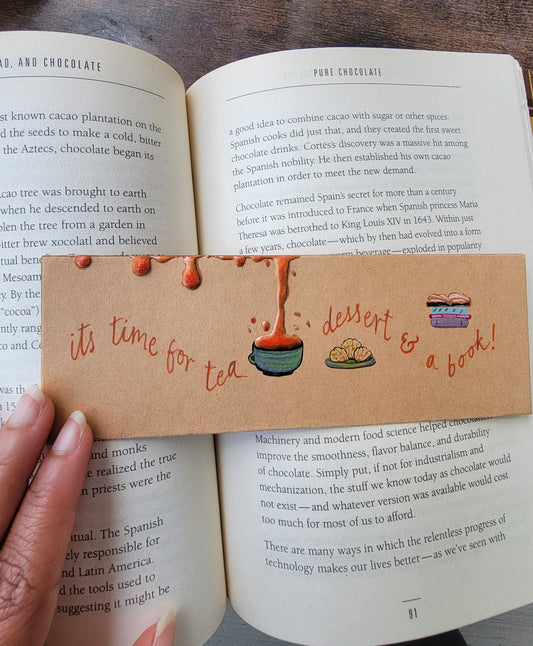 AO, AND CHOCOLATE
st known cacao plantation on the
d the seeds to make a cold, bitter
the Aztecs, chocolate began its
cao tree was brought to earth
when he descended to earth on
olen the tree from a garden in
bitter brew xocolatl and believed
tual benefi
Mesoam
By the
("cocoa")
ntly rang
and Ce
in 15
and monks
e realized the true
n priests were the
itual. The Spanish
ely responsible for
nd Latin America.
d the tools used to
suggesting it might be
PURE CHOCOLATE
a good idea to combine cacao with sugar or other spices.
Spanish cooks did just that, and they created the first sweet
chocolate drinks. Cortés's discovery was a massive hit among
the Spanish nobility. He then established his own cacao
plantation in order to meet the new demand.
Chocolate remained Spain's secret for more than a century
before it was introduced to France when Spanish princess Maria
Theresa was betrothed to King Louis XIV in 1643. Within just
a few years, chocolate—which by then had evolved into a form
warm beverage—exploded in popularity
its time for tea dessert & a book!
Machinery and modern food science helped chocolatiers
improve the smoothness, flavor balance, and durability
of chocolate. Simply put, if not for industrialism and
mechanization, the stuff we know today as chocolate would
not exist—and whatever version was available would cost
too much for most of us to afford.
There are many ways in which the relentless progress of
technology makes our lives better—as we've seen with
91